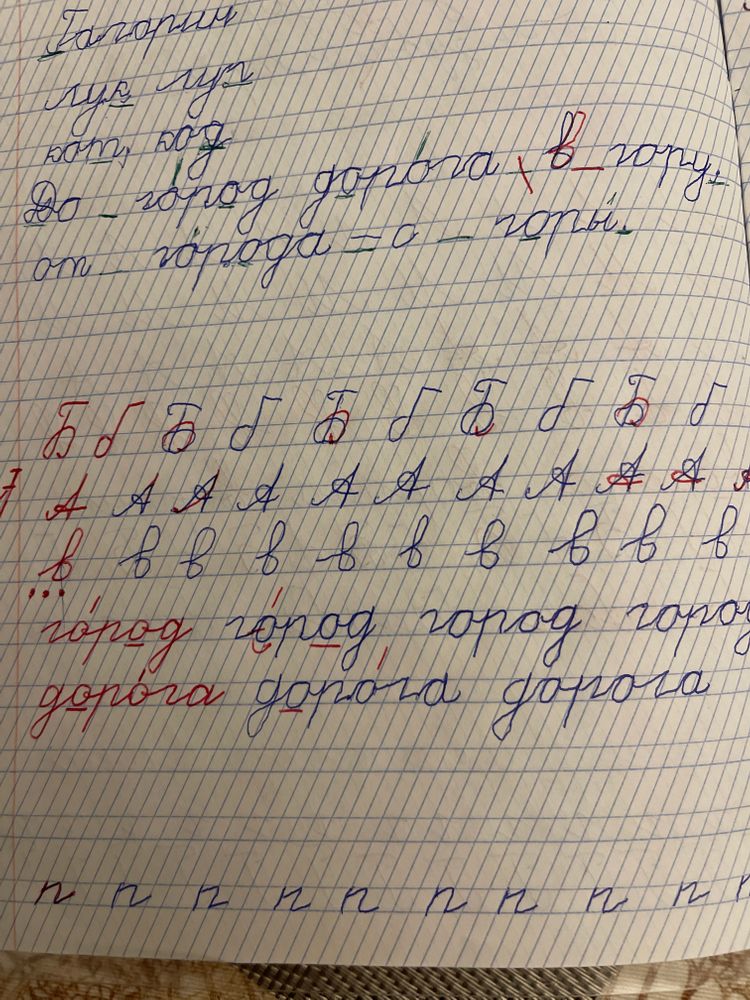 Гагарин
лук луг
кот, код
До города дорога - в гору,
от города - с горы.
Б б Б б Б б Б б Б б
А А А А А А А А А А
в в в в в в в в в в
го́род го́род, город город
доро́га доро́га дорога
п п п п п п п п п